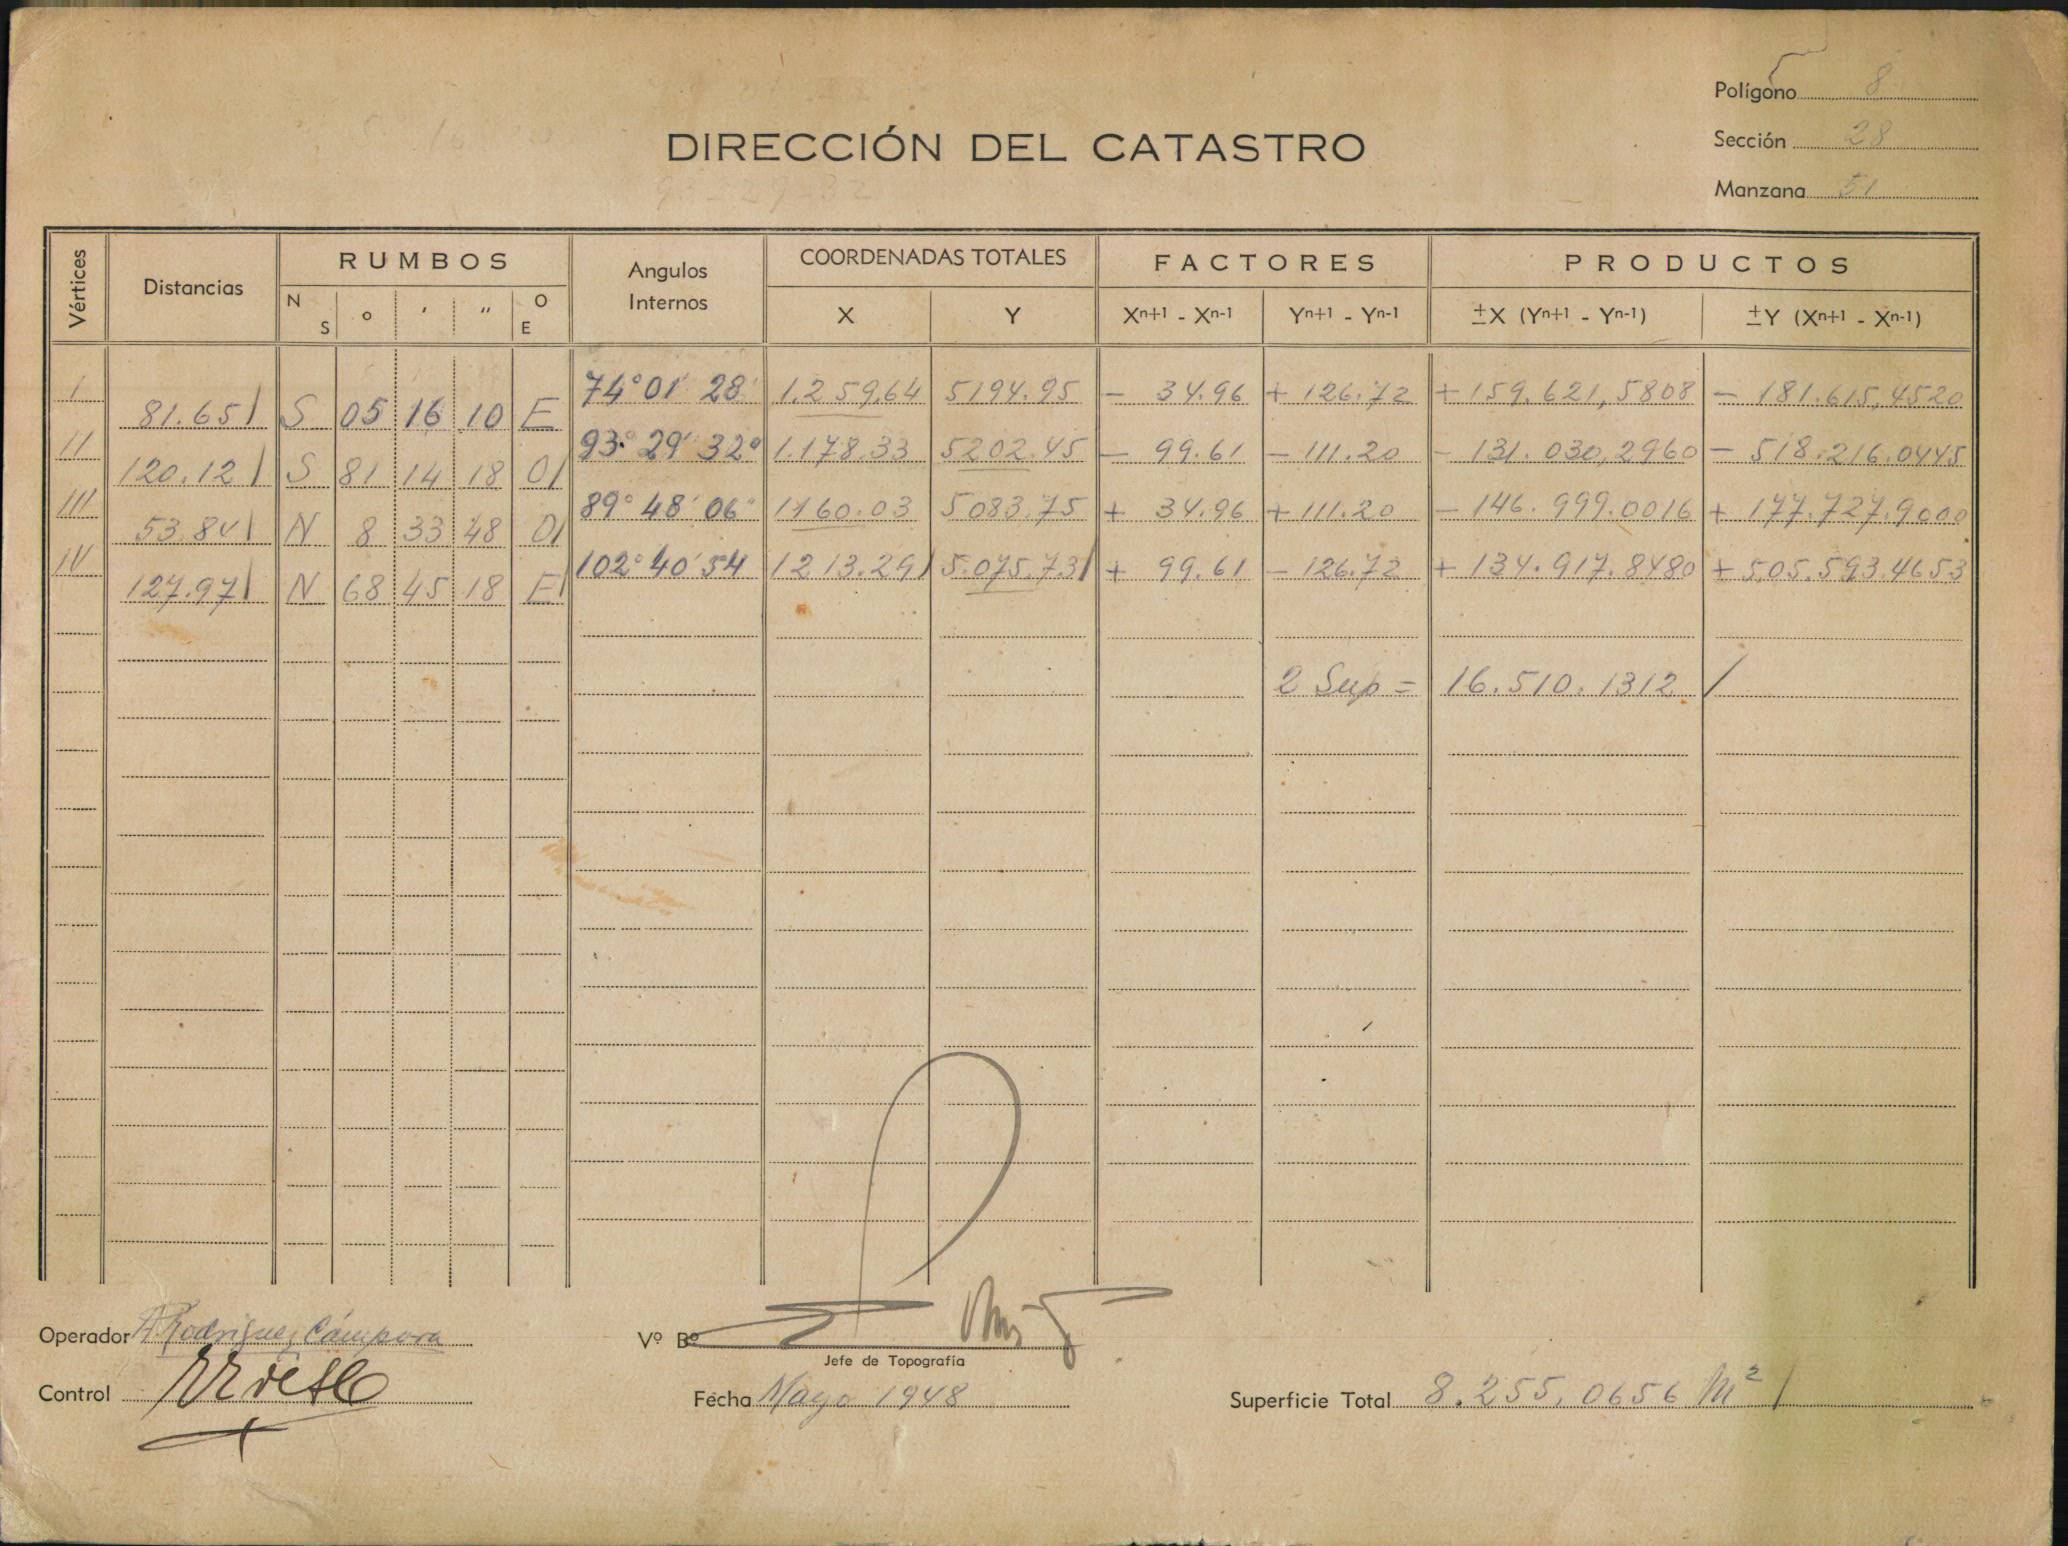 Polígono 8
DIRECCIÓN DEL CATASTRO
Sección 28
Manzana 51
Vértices
Distancias
RUMBOS
N S ° ' " O E
Angulos Internos
COORDENADAS TOTALES
X Y
FACTORES
Xn+1 - Xn-1 Yn+1 - Yn-1
PRODUCTOS
±X (Yn+1 - Yn-1) ±Y (Xn+1 - Xn-1)
I 74° 01' 28" 1.259.64 5194.95 - 34.96 + 126.72 + 159.621,5808 - 181.615,4520
81.65 S 05 16 10 E
II 93° 29' 32" 1.178.33 5202.45 - 99.61 - 111.20 - 131.030,2960 - 518.216.0445
120.12 S 81 14 18 O
III 89° 48' 06" 1160.03 5083.75 + 34.96 + 111.20 - 146.999.0016 + 177.727.9000
53.84 N 8 33 48 O
IV 102° 40' 54 1213.29 5.075.73 + 99.61 - 126.72 + 134.917.8480 + 505.593.4653
127.97 N 68 45 18 E
2 Sup = 16.510.1312
Operador A Rodriguez Cámpora
Vº Bº
Jefe de Topografía
Control
Fecha Mayo 1948
Superficie Total 8.255,0656 M²